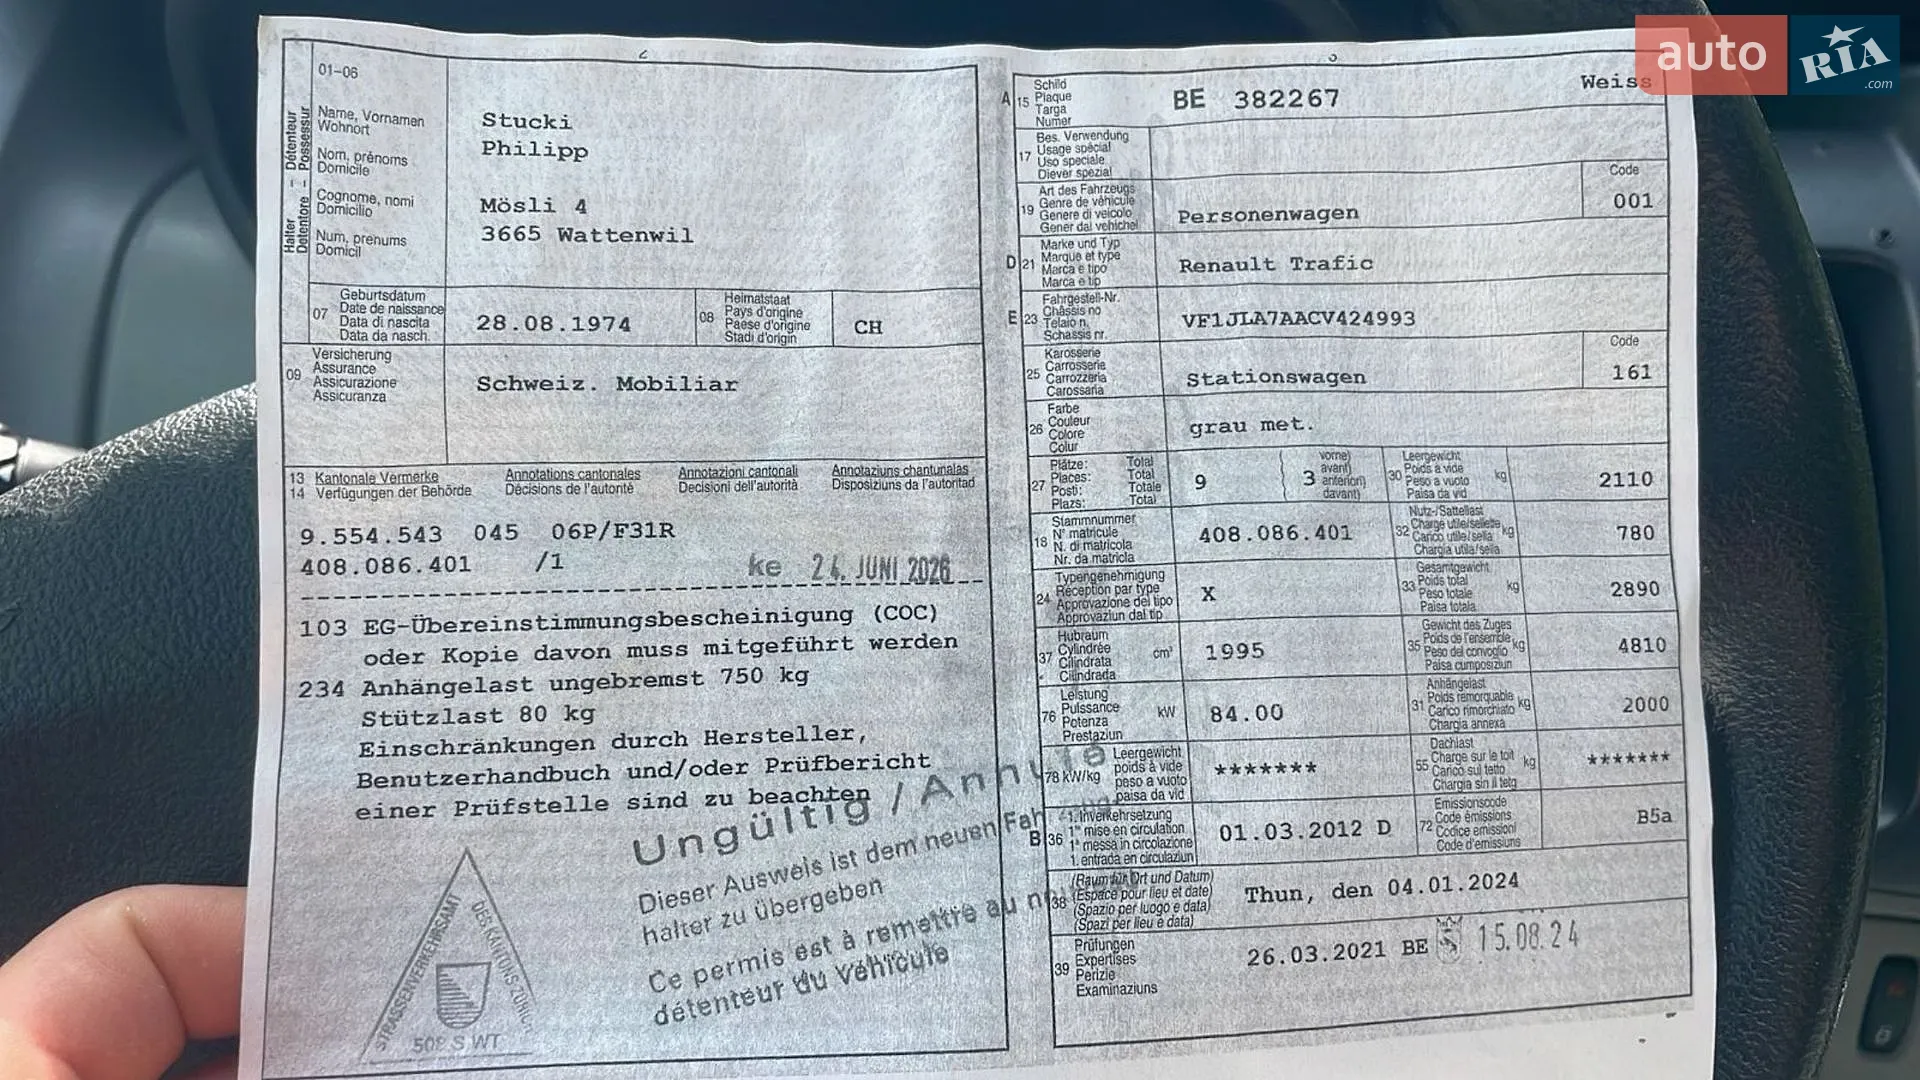 auto RIA.com
01-06
Halter – Détenteur
Detentore – Possessur
Name, Vornamen
Wohnort
Nom, prénoms
Domicile
Cognome, nomi
Domicilio
Num, prenums
Domicil
Stucki
Philipp
Mösli 4
3665 Wattenwil
07 Geburtsdatum
Date de naissance
Data di nascita
Data da nasch.
28.08.1974
08 Heimatstaat
Pays d'origine
Paese d'origine
Stadi d'origin
CH
09 Versicherung
Assurance
Assicurazione
Assicuranza
Schweiz. Mobiliar
13 Kantonale Vermerke Annotations cantonales Annotazioni cantonali Annotaziuns chantunalas
14 Verfügungen der Behörde Décisions de l'autorité Decisioni dell'autorità Disposiziuns da l'autoritad
9.554.543 045 06P/F31R
408.086.401 /1 ke 24. JUNI 2026
103 EG-Übereinstimmungsbescheinigung (COC)
oder Kopie davon muss mitgeführt werden
234 Anhängelast ungebremst 750 kg
Stützlast 80 kg
Einschränkungen durch Hersteller,
Benutzerhandbuch und/oder Prüfbericht
einer Prüfstelle sind zu beachten
Ungültig / Annulé
Dieser Ausweis ist dem neuen Fah
halter zu übergeben
Ce permis est à remettre au
détenteur du véhicule
STRASSENVERKEHRSAMT
DES KANTONS ZÜRICH
508 S WT
A 15 Schild
Plaque
Targa
Numer
BE 382267
Weiss
17 Bes. Verwendung
Usage spécial
Uso speciale
Diever spezial
19 Art des Fahrzeugs
Genre de véhicule
Genere di veicolo
Gener dal vehichel
Personenwagen
Code
001
D 21 Marke und Typ
Marque et type
Marca e tipo
Marca e tip
Renault Trafic
E 23 Fahrgestell-Nr.
Châssis no
Telaio n.
Schassis nr.
VF1JLA7AACV424993
25 Karosserie
Carrosserie
Carrozzeria
Carossaria
Stationswagen
Code
161
26 Farbe
Couleur
Colore
Colur
grau met.
27 Plätze: Total
Places: Total
Posti: Totale
Plazs: Total
9
3 vorne)
avant)
anteriori)
davant)
30 Leergewicht
Poids à vide
Peso a vuoto
Paisa da vid
kg
2110
18 Stammnummer
N° matricule
N. di matricola
Nr. da matricla
408.086.401
32 Nutz-/Sattellast
Charge utile/sellette
Carico utile/sella
Chargia utila/sella
kg
780
24 Typengenehmigung
Réception par type
Approvazione del tipo
Approvaziun dal tip
X
33 Gesamtgewicht
Poids total
Peso totale
Paisa totala
kg
2890
37 Hubraum
Cylindrée
Cilindrata
Cilindrada
cm³
1995
35 Gewicht des Zuges
Poids de l'ensemble
Peso del convoglio
Paisa cumposiziun
kg
4810
76 Leistung
Puissance
Potenza
Prestaziun
kW
84.00
31 Anhängelast
Poids remorquable
Carico rimorchiato
Chargia annexa
kg
2000
78 kW/kg Leergewicht
poids à vide
peso a vuoto
paisa da vid
*******
55 Dachlast
Charge sur le toit
Carico sul tetto
Chargia sin il tetg
kg
*******
B 36 1. Inverkehrsetzung
1re mise en circulation
1a messa in circolazione
1. entrada en circulaziun
01.03.2012 D
72 Emissionscode
Code émissions
Codice emissioni
Code d'emissiuns
B5a
38 (Raum für Ort und Datum)
(Espace pour lieu et date)
(Spazio per luogo e data)
(Spazi per lieu e data)
Thun, den 04.01.2024
39 Prüfungen
Expertises
Perizie
Examinaziuns
26.03.2021 BE 15.08.24